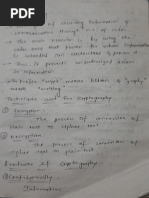 of securing information &
communication through use of codes.
So that person for whom information
is intended can understand & process it.
This is prevent unauthorized access
to information.
prefix "crypt" means hidden & "graphy"
means "writing"
Techniques used for Cryptography
① Encryption :-
The process of conversion of
Plain text to cipher text
② Decryption
The process of conversion of
cipher text to plain text.
Features of Cryptography:-
① Confidentiality
Information